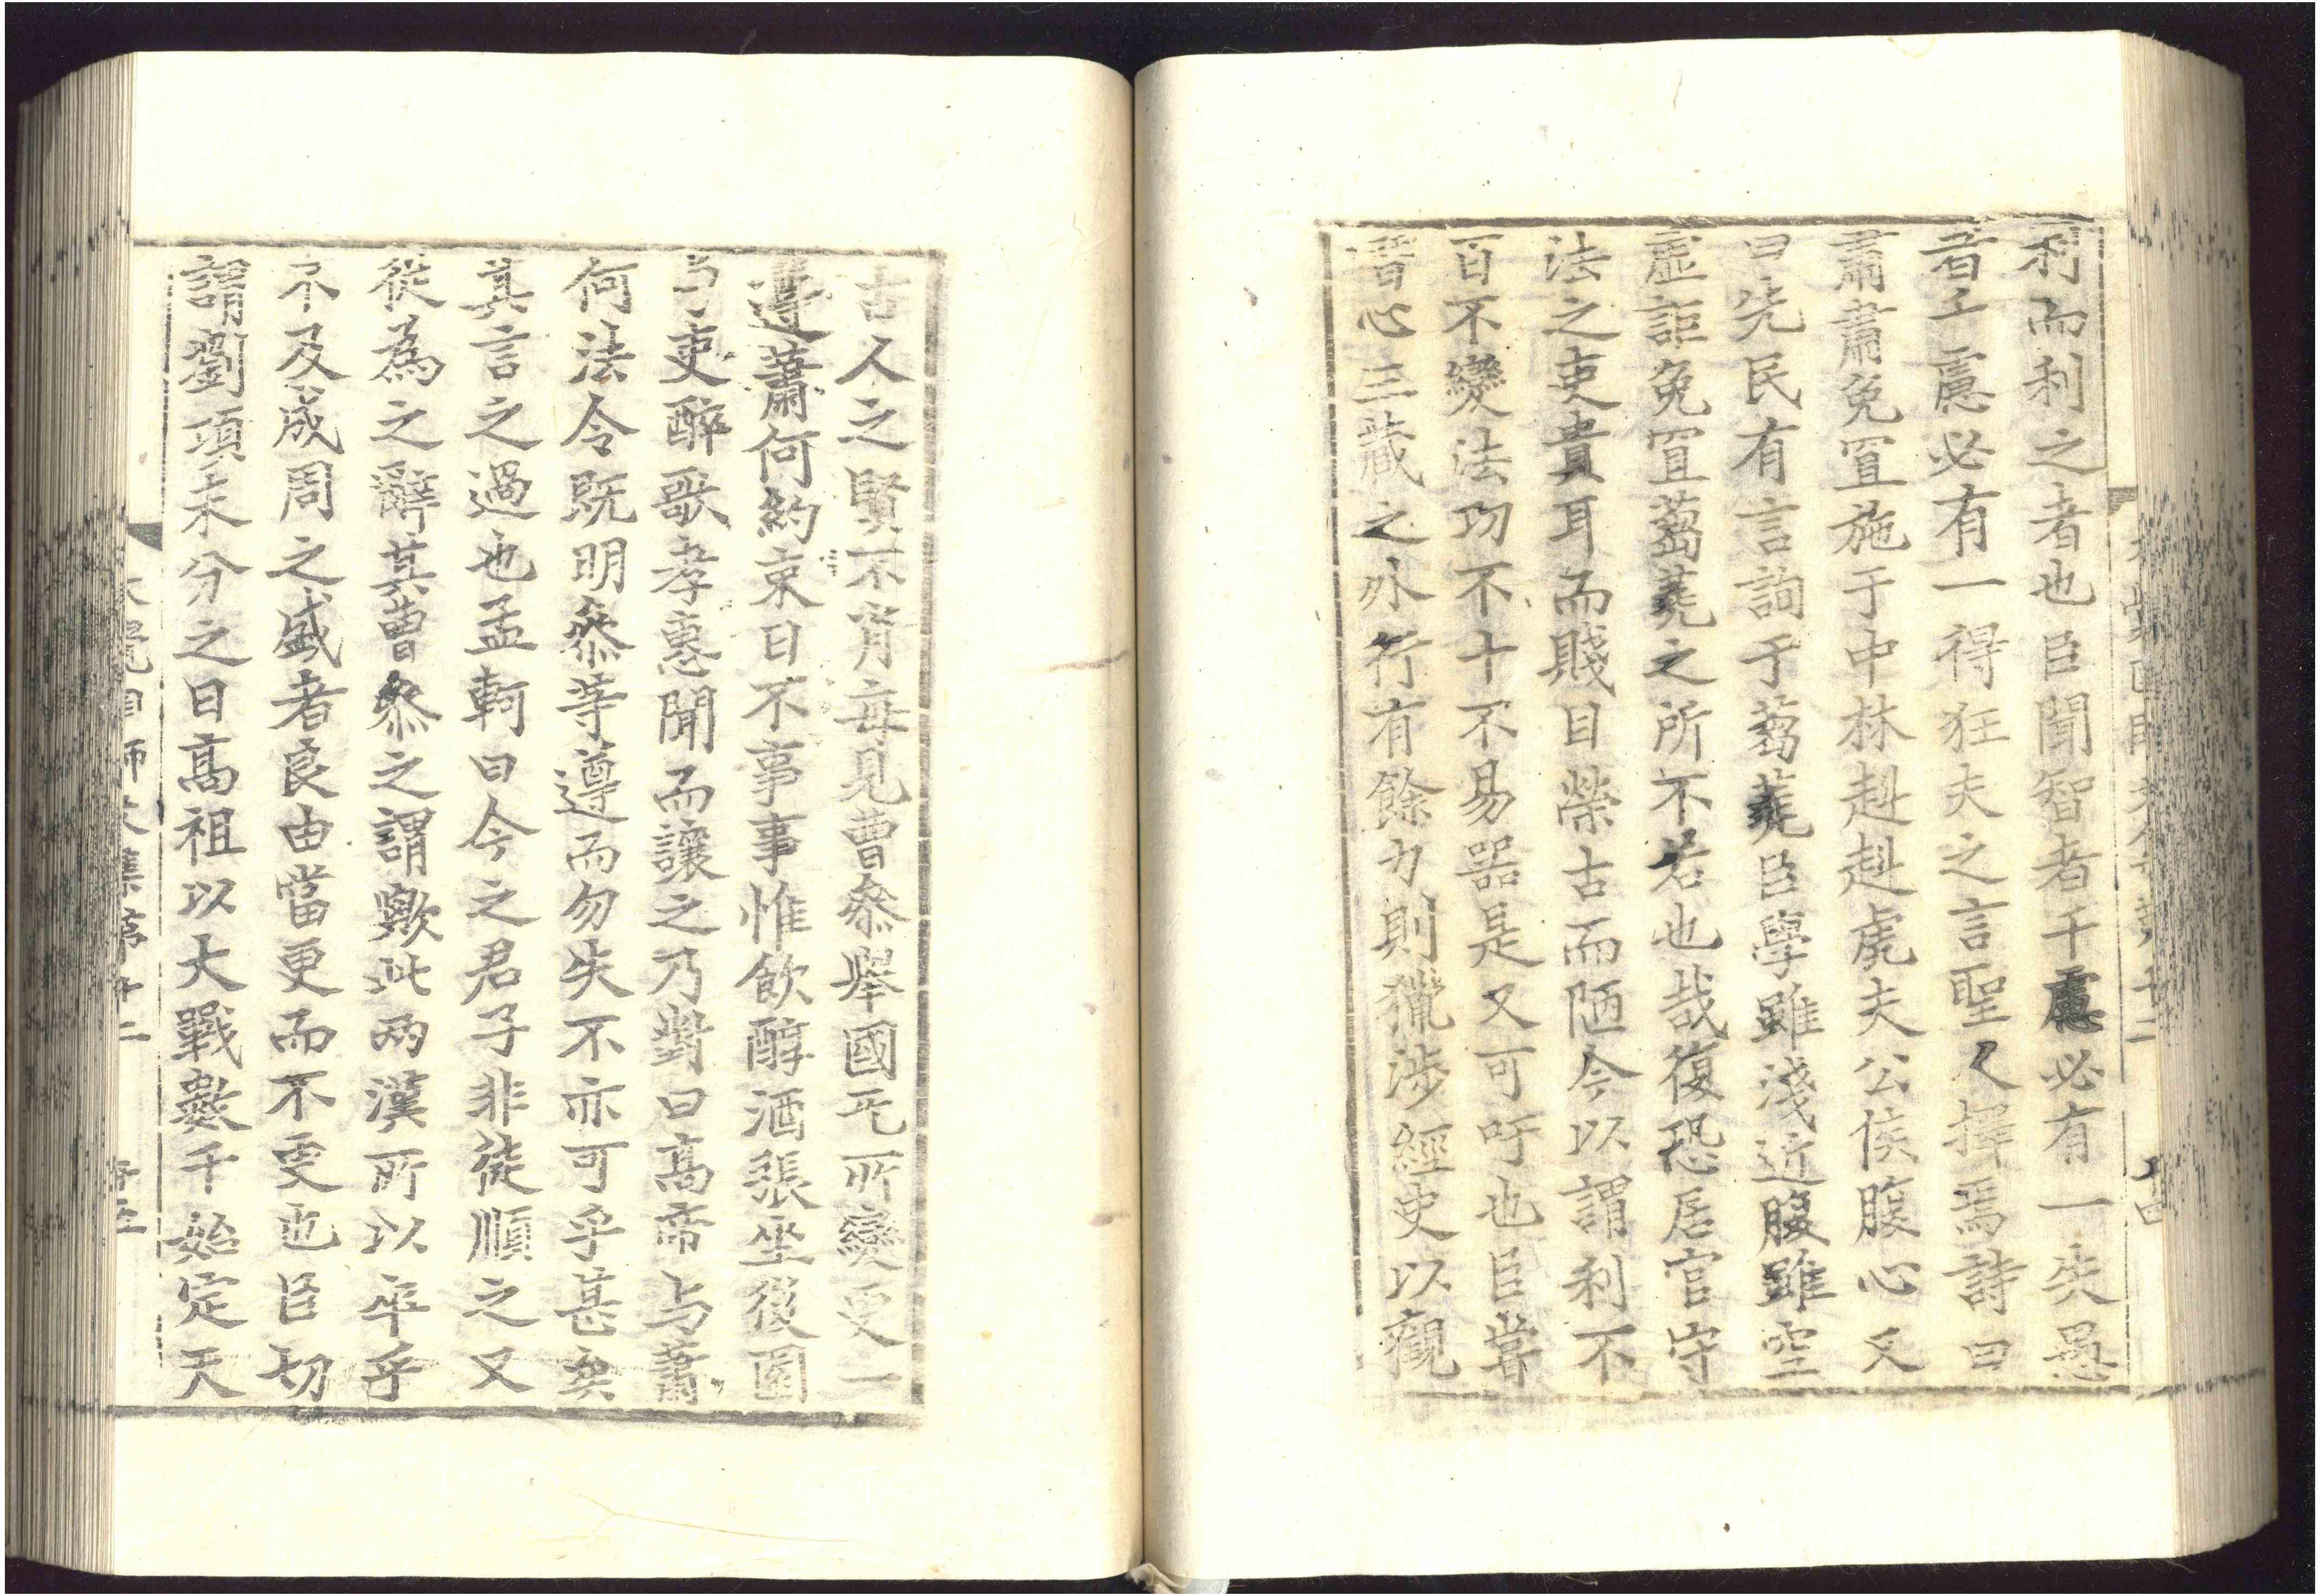 利而利之者也臣聞智者千慮必有一失愚
者千慮必有一得狂夫之言聖人擇焉詩曰
肅肅兔罝施于中林赳赳虎夫公侯腹心又
曰先民有言詢于蒭蕘臣學雖淺近腹雖空
虛詎兔罝蒭蕘之所不若也哉復恐居官守
法之吏貴耳而賤目榮古而陋今以謂利不
百不變法功不十不易器是又可吁也臣嘗
潛心三藏之外行有餘力則獵涉經史以觀
大覺國師文集第十二
古人之賢不肖每見曹叅擧國無所變更一
遵蕭何約束日不事事惟飮醇酒張坐後園
與吏醉歌孝惠聞而讓之乃對曰高帝與蕭
何法令旣明叅等遵而勿失不亦可乎甚矣
其言之過也孟軻曰今之君子非徒順之又
從爲之辭其曹叅之謂歟此兩漢所以卒乎
不及成周之盛者良由當更而不更也臣切
謂劉項未分之日高祖以大戰數千始定天
大覺國師文集第十二